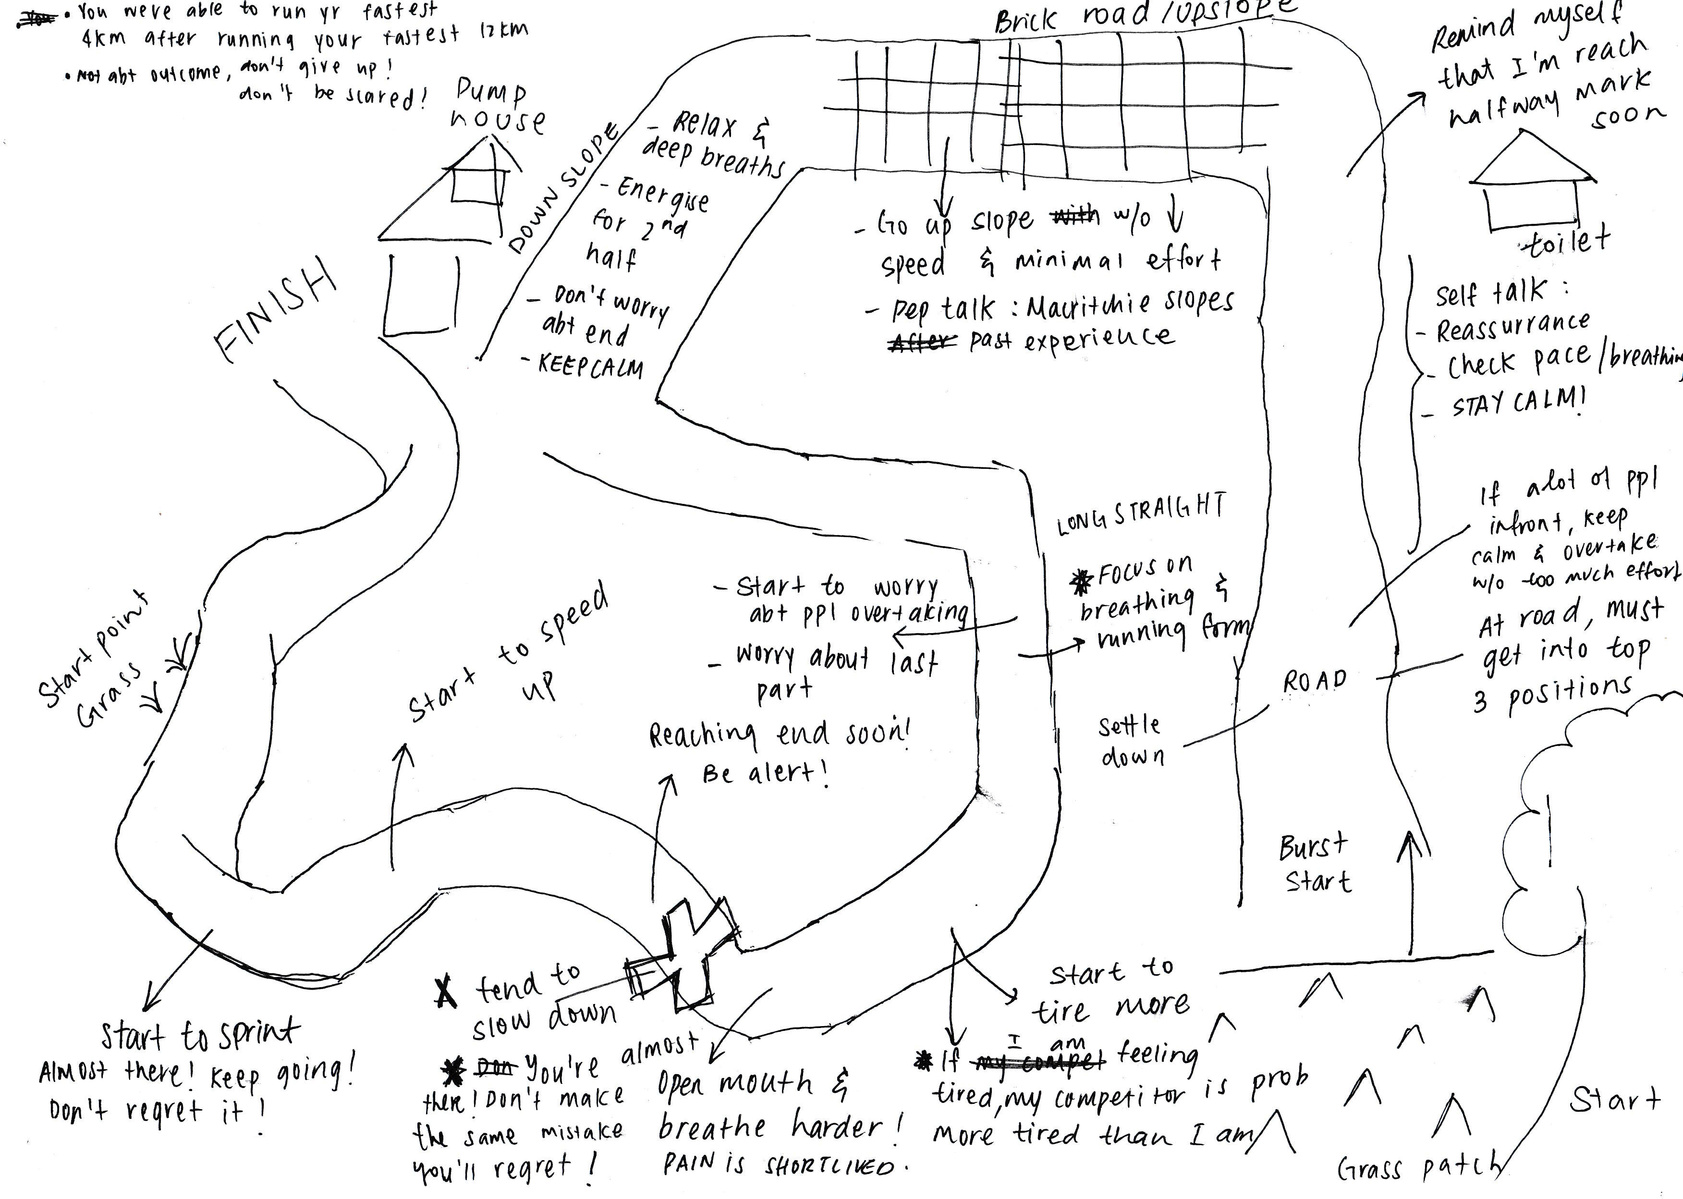 • You were able to run yr fastest
4km after running your fastest 12km
• Not abt outcome, don't give up!
don't be scared!
Pump
house
FINISH
DOWN SLOPE
- Relax &
deep breaths
- Energise
for 2nd
half
- Don't worry
abt end
- KEEP CALM
Brick road/upslope
- Go up slope with w/o ↓
speed & minimal effort
- Pep talk : Macritchie slopes
After past experience
Remind myself
that I'm reach
halfway mark
soon
toilet
Self talk :
- Reassurrance
- Check pace/breathing
- STAY CALM!
If alot of ppl
infront, keep
calm & overtake
w/o too much effort
At road, must
get into top
3 positions
ROAD
Settle
down
Burst
Start
LONG STRAIGHT
* FOCUS ON
breathing &
running form
- Start to worry
abt ppl overtaking
- worry about last
part
Reaching end soon!
Be alert!
Start to speed
up
Start point
Grass
Start to sprint
Almost there! Keep going!
Don't regret it!
X tend to
slow down
* Don You're almost
there! Don't make
the same mistake
you'll regret!
Open mouth &
breathe harder!
PAIN is SHORTLIVED.
Start to
tire more
* If my compet I am feeling
tired, my competitor is prob
more tired than I am
Start
Grass patch